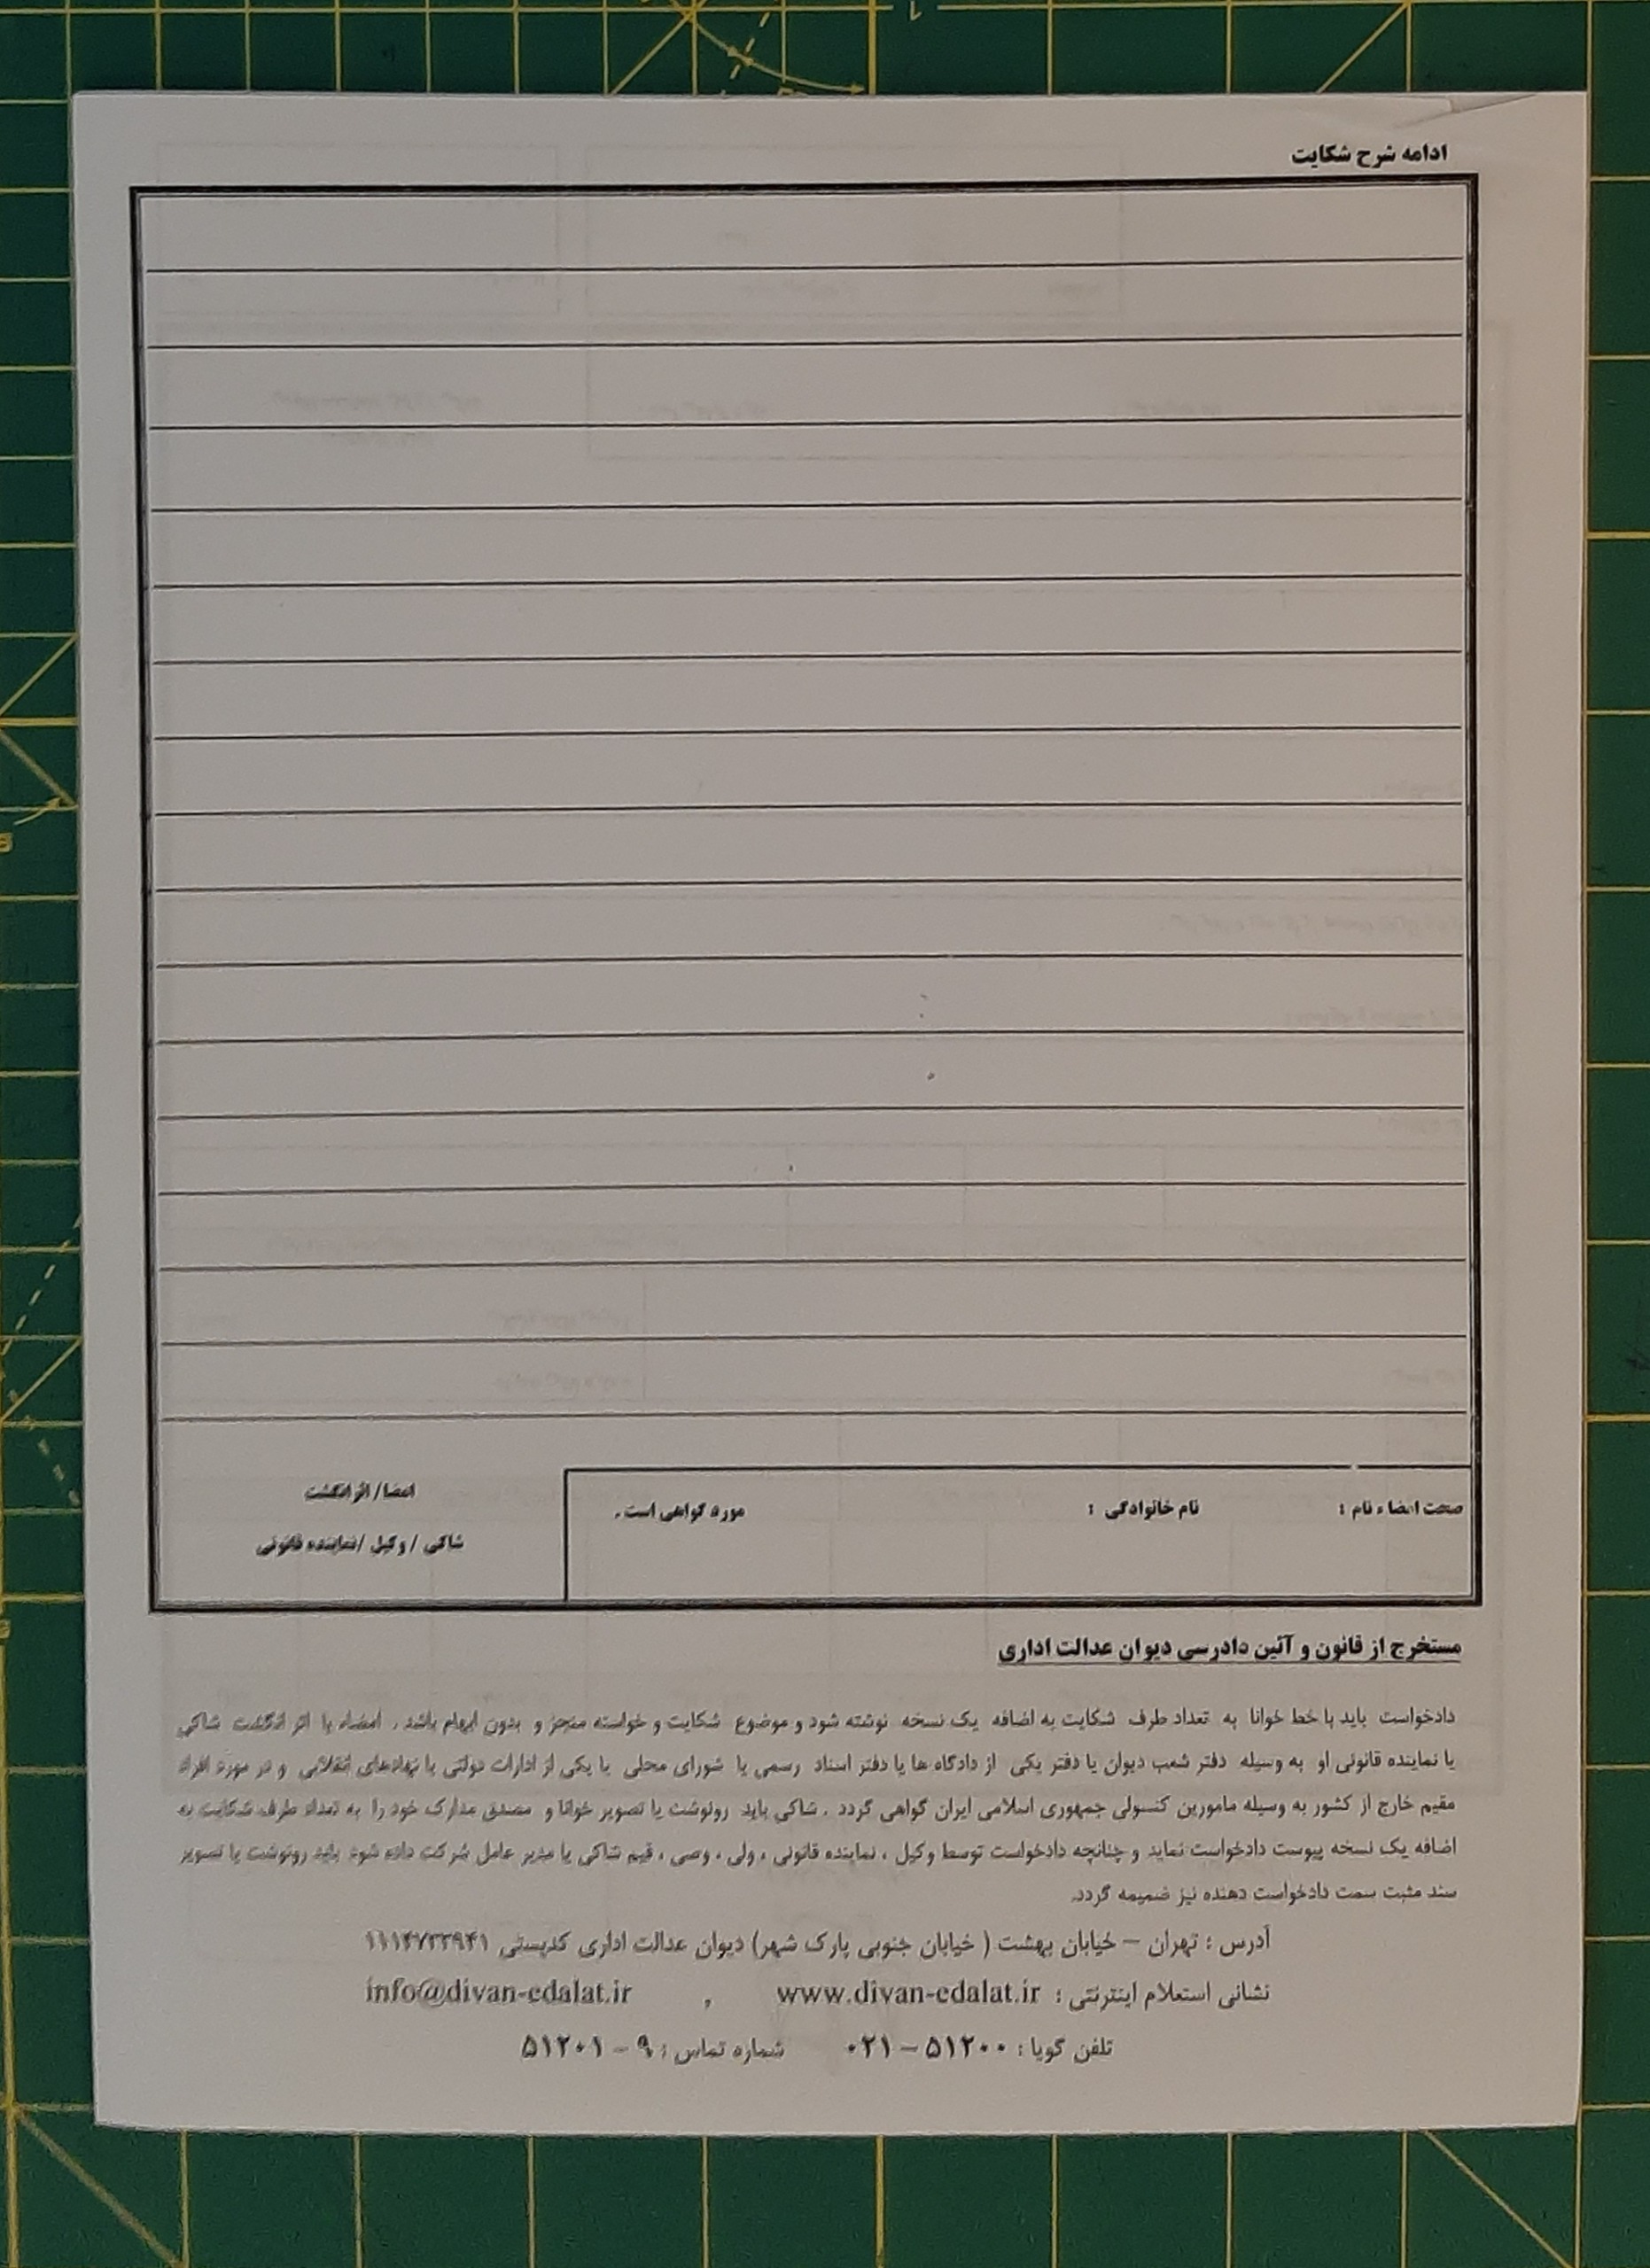 ادامه شرح شکایت
صحت امضاء نام : نام خانوادگی : مورد گواهی است .
امضا/ اثر انگشت
شاکی / وکیل /نماینده قانونی
مستخرج از قانون و آئین دادرسی دیوان عدالت اداری
دادخواست باید با خط خوانا به تعداد طرف شکایت به اضافه یک نسخه نوشته شود و موضوع شکایت و خواسته منجز و بدون ابهام باشد . امضاء یا اثر انگشت شاکی
یا نماینده قانونی او به وسیله دفتر شعب دیوان یا دفتر یکی از دادگاه ها یا دفتر اسناد رسمی یا شورای محلی یا یکی از ادارات دولتی یا نهادهای انقلابی و در مورد افراد
مقیم خارج از کشور به وسیله مامورین کنسولی جمهوری اسلامی ایران گواهی گردد . شاکی باید رونوشت یا تصویر خوانا و مصدق مدارک خود را به تعداد طرف شکایت به
اضافه یک نسخه پیوست دادخواست نماید و چنانچه دادخواست توسط وکیل ، نماینده قانونی ، ولی ، وصی ، قیم شاکی یا مدیر عامل شرکت داده شود باید رونوشت یا تصویر
سند مثبت سمت دادخواست دهنده نیز ضمیمه گردد.
آدرس : تهران – خیابان بهشت ( خیابان جنوبی پارک شهر) دیوان عدالت اداری کدپستی ۱۱۱۴۷۳۳۹۴۱
نشانی استعلام اینترنتی : www.divan-edalat.ir , info@divan-edalat.ir
تلفن گویا : ۵۱۲۰۰ – ۰۲۱ شماره تماس : ۹ - ۵۱۲۰۱